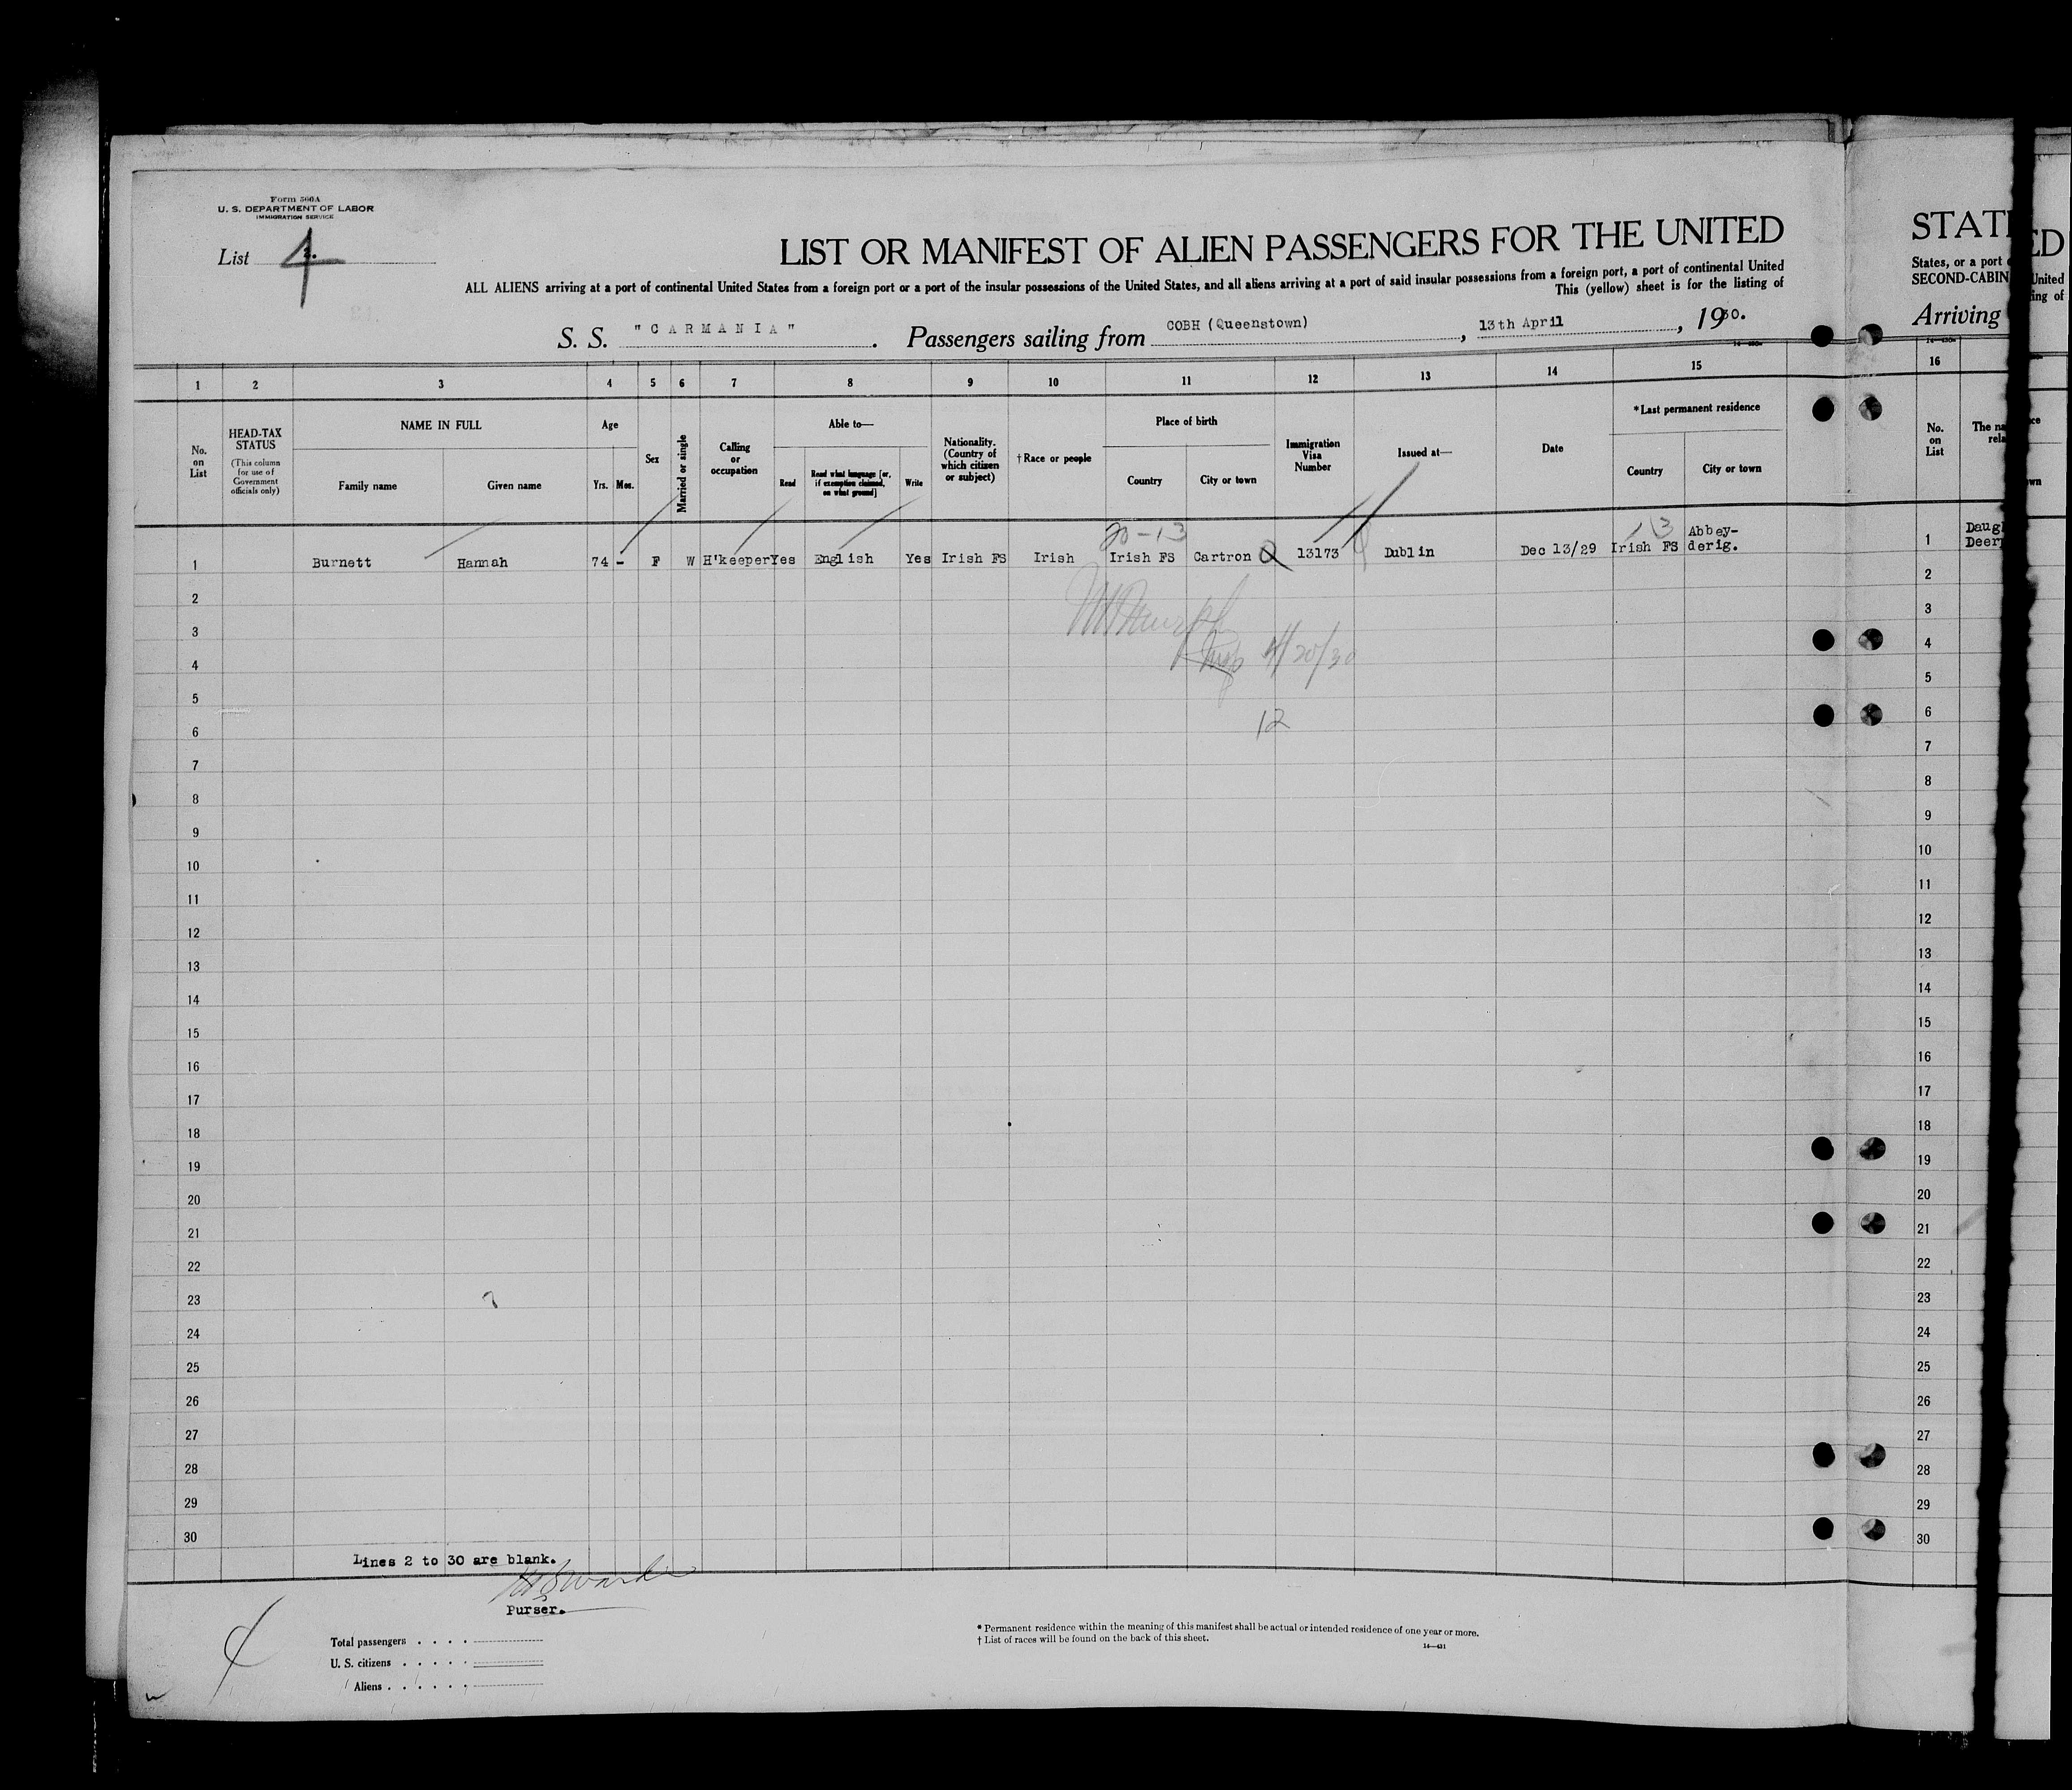 Form 500A
U. S. DEPARTMENT OF LABOR
IMMIGRATION SERVICE
List 4
LIST OR MANIFEST OF ALIEN PASSENGERS FOR THE UNITED
ALL ALIENS arriving at a port of continental United States from a foreign port or a port of the insular possessions of the United States, and all aliens arriving at a port of said insular possessions from a foreign port, a port of continental United
This (yellow) sheet is for the listing of
S. S. "CARMANIA". Passengers sailing from COBH (Queenstown), 13th April, 1930.
STAT
States, or a port
SECOND-CABIN
Arriving
ED
United
ing of
1 2 3 4 5 6 7 8 9 10 11 12 13 14 15 16
No. on List
HEAD-TAX STATUS
(This column for use of Government officials only)
NAME IN FULL
Family name
Given name
Age
Yrs. Mos.
Sex
Married or single
Calling or occupation
Able to—
Read
Read what language [or, if exemption claimed, on what ground]
Write
Nationality. (Country of which citizen or subject)
† Race or people
Place of birth
Country
City or town
Immigration Visa Number
Issued at—
Date
*Last permanent residence
Country
City or town
No. on List
The na
rela
20-13
13
1 Burnett Hannah 74 - F W H'keeper Yes English Yes Irish FS Irish Irish FS Cartron 13173 Dublin Dec 13/29 Irish FS Abbey-
derig.
1 Daug
Deer
4/20/30
12
2 2
3 3
4 4
5 5
6 6
7 7
8 8
9 9
10 10
11 11
12 12
13 13
14 14
15 15
16 16
17 17
18 18
19 19
20 20
21 21
22 22
23 23
24 24
25 25
26 26
27 27
28 28
29 29
30 30
Lines 2 to 30 are blank.
Purser.
4
Total passengers . . . .
U. S. citizens . . . . .
Aliens . . . . . .
* Permanent residence within the meaning of this manifest shall be actual or intended residence of one year or more.
† List of races will be found on the back of this sheet.
14—431